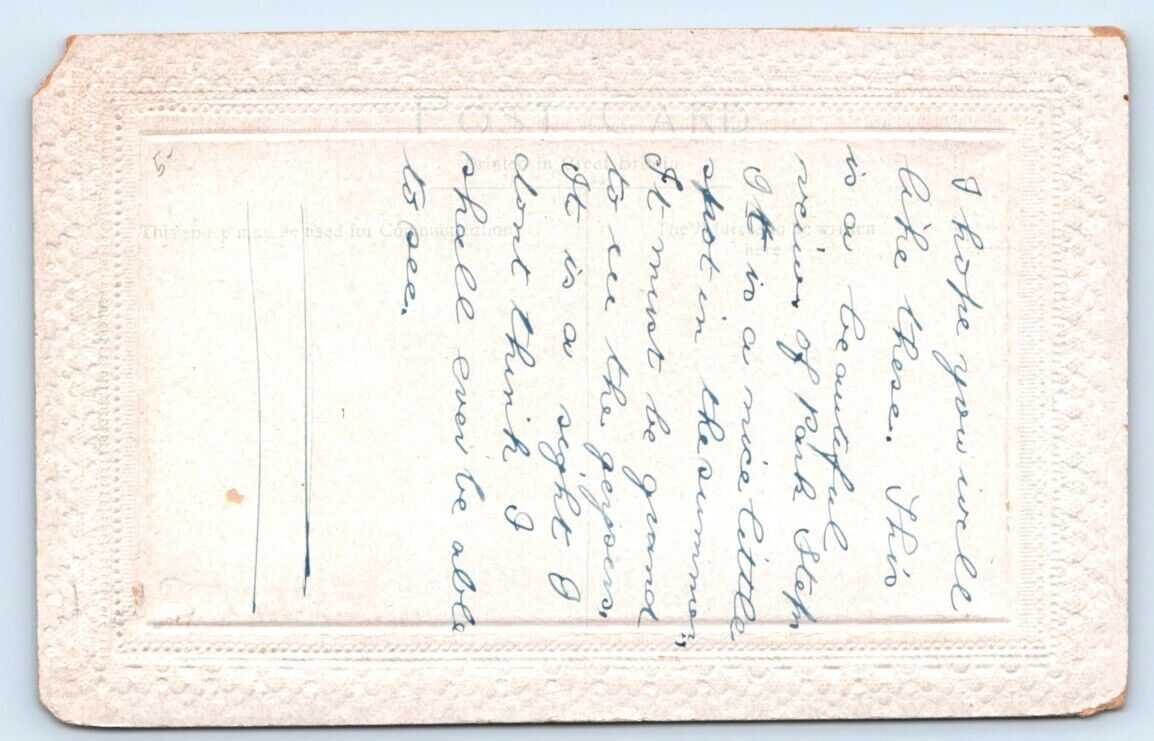 POST CARD
Printed in Great Britain
This space may be used for Communication
The Address to be written
here
5
I hope you will
like these. This
is a beautiful
veiw of Park Step
It is a nice little
spot in the summer,
It must be grand
to see the geysers,
It is a sight I
dont think I
shall ever be able
to see.